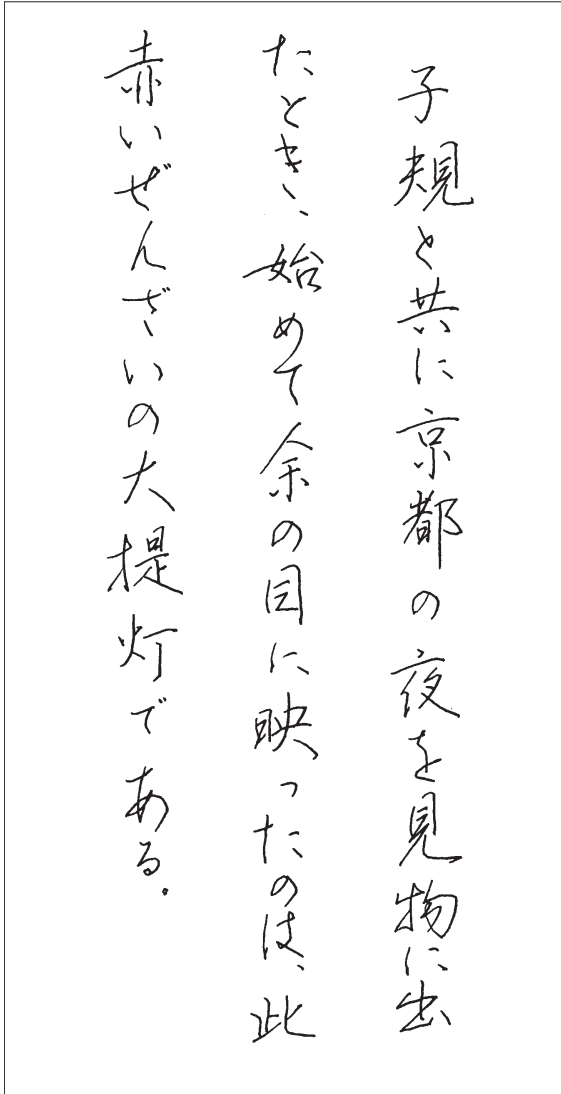 子規と共に京都の夜を見物に出
たとき、始めて余の目に映ったのは、此
赤いぜんざいの大提灯である。